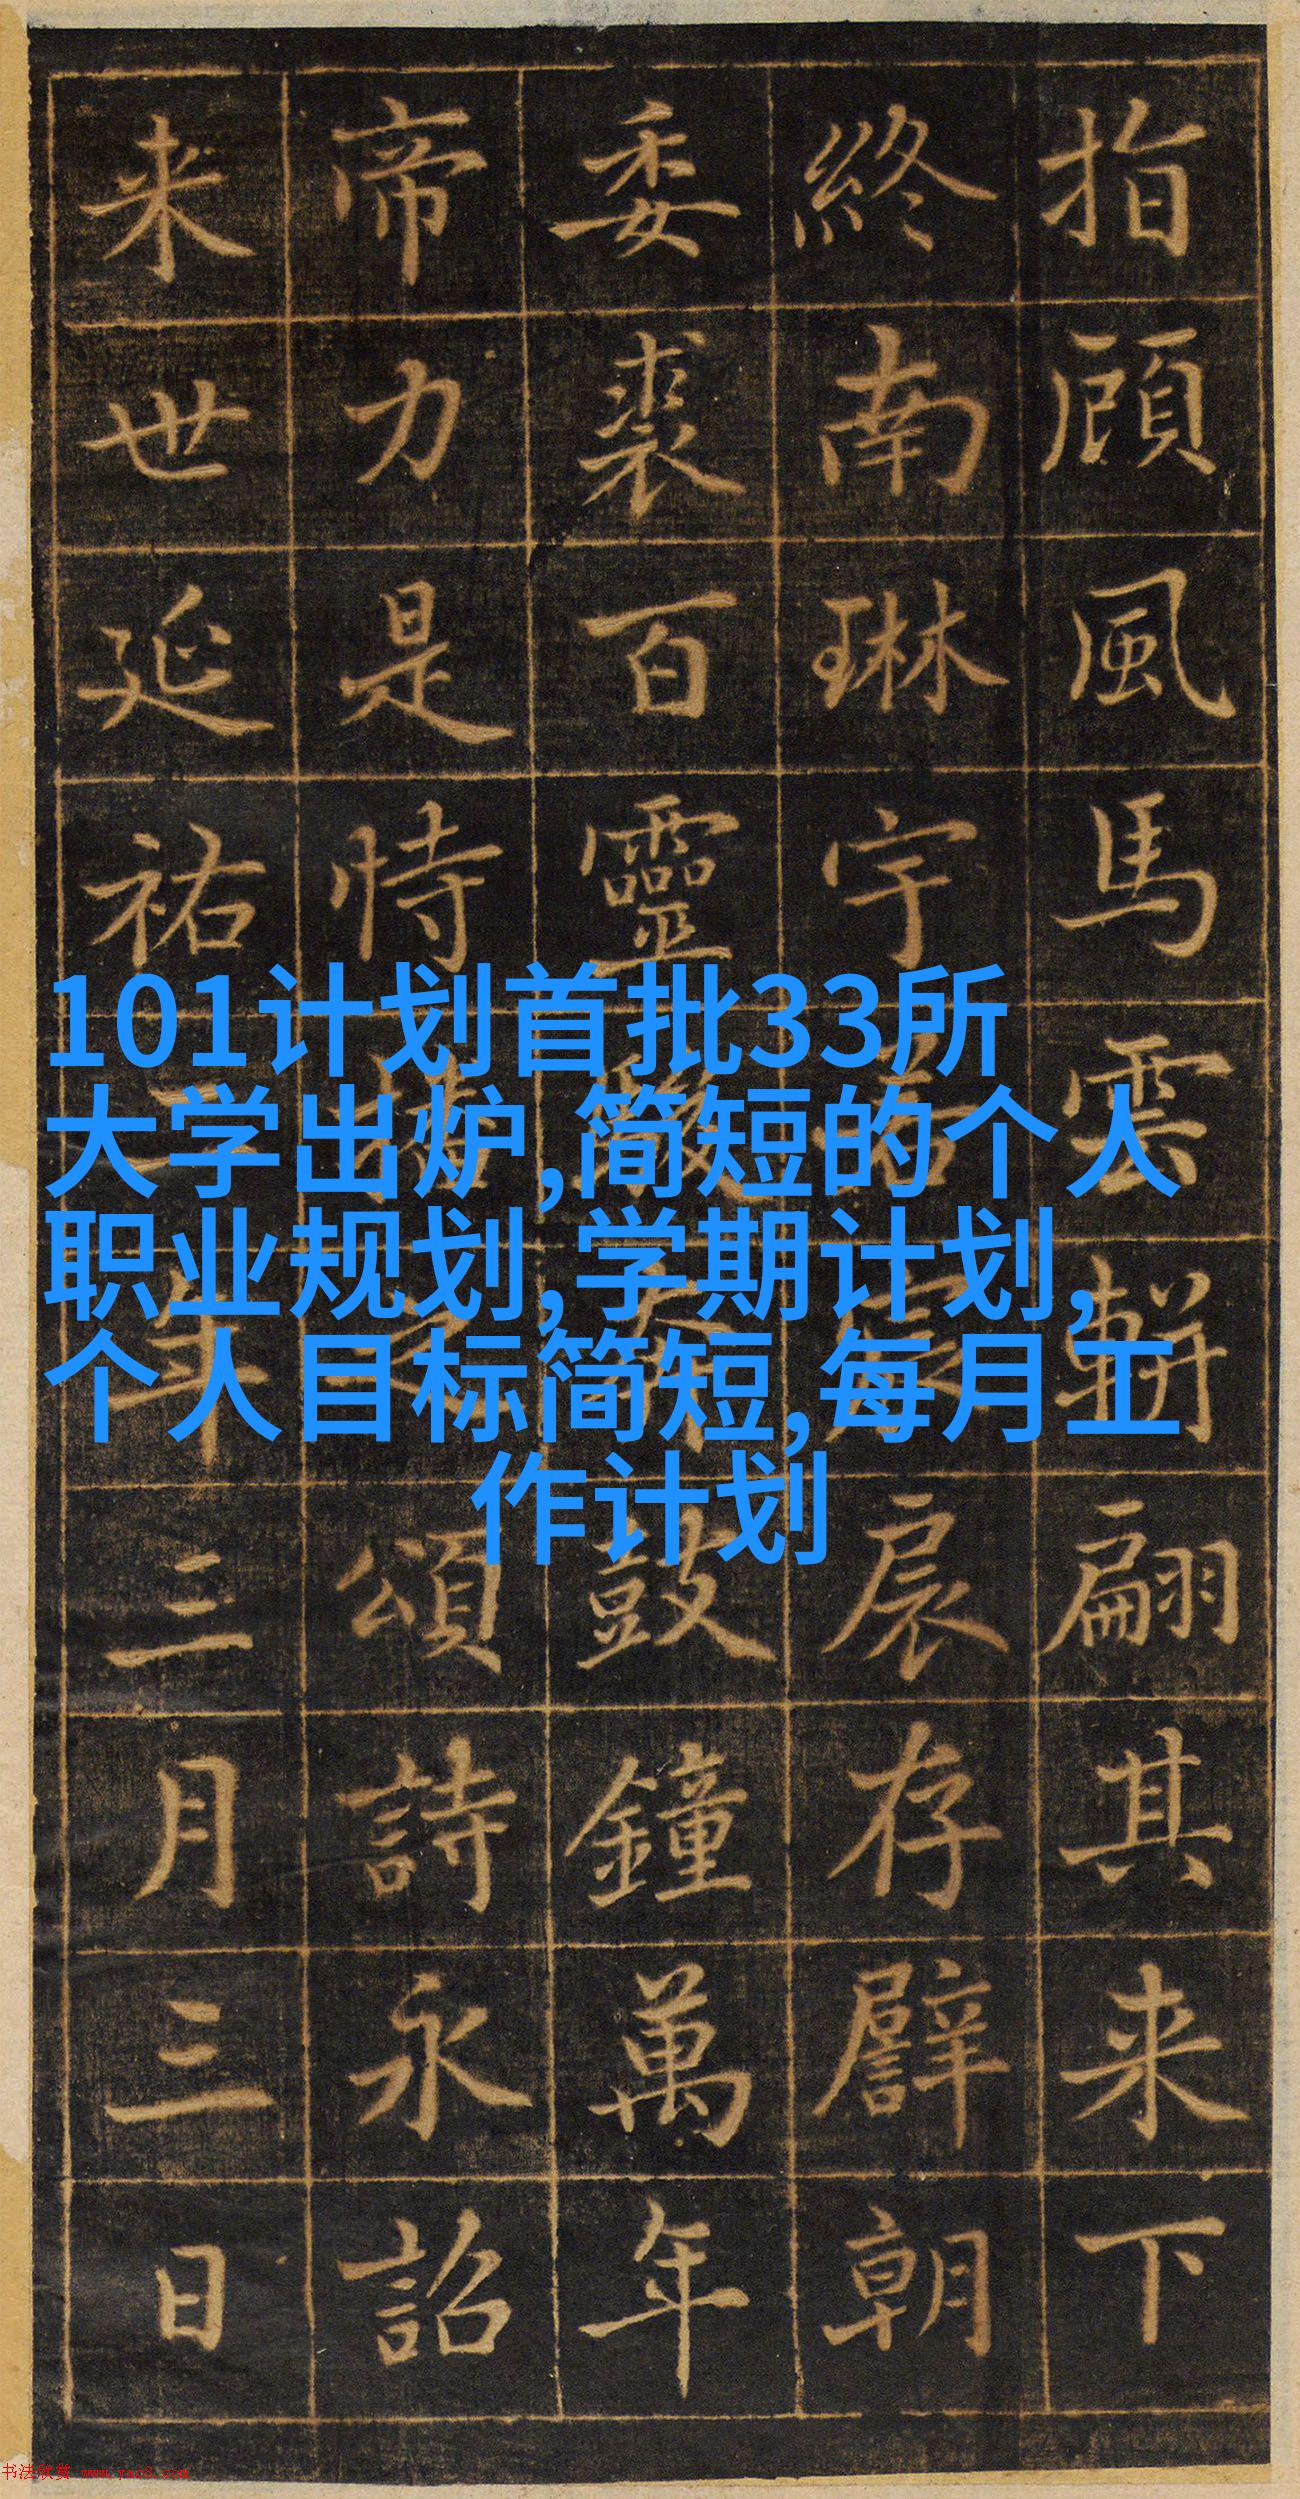 指顧風馬雲輧翩其来下
終南琳宇若扆存譬朝
委裘百靈鼓鐘萬年
帝力是恃播之頌詩永詔
来世延祐二年三月三日
101计划首批33所
大学出炉,简短的个人
职业规划,学期计划,
个人目标简短,每月工
作计划
书法欣赏 www.yac8.com